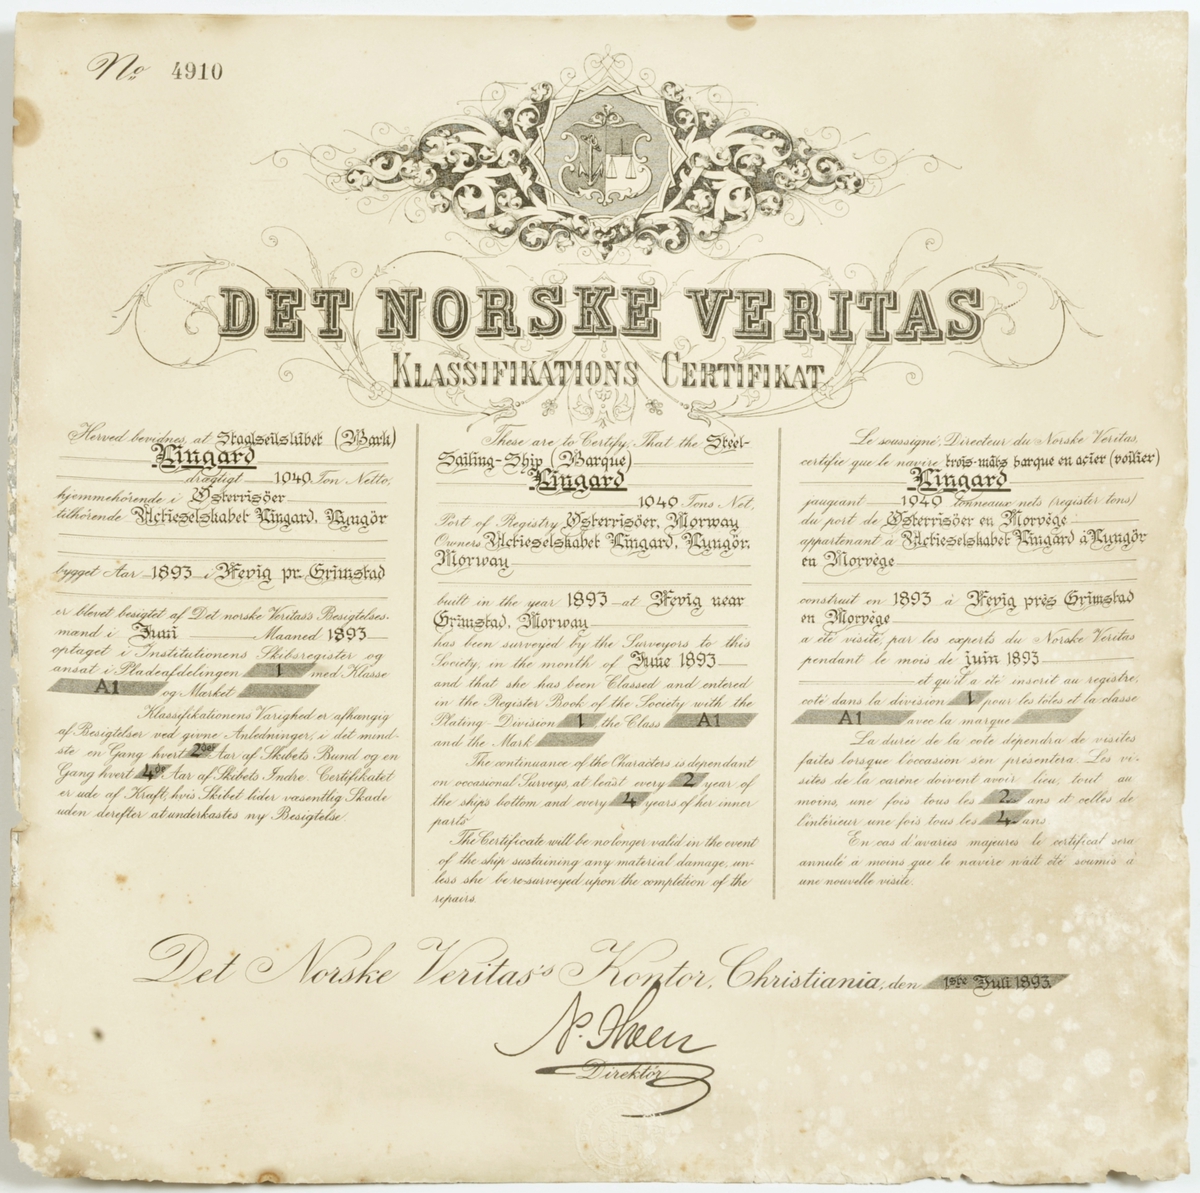 No 4910
DET NORSKE VERITAS
KLASSIFIKATIONS CERTIFIKAT
Herved bevidnes, at Staalseilskibet (Bark)
Lingard
drægtigt 1040 Ton Netto,
hjemmehörende i Österrisöer
tilhörende Actieselskabet Lingard, Lyngör
bygget Aar 1893 i Fevig pr. Grimstad
er blevet besigtet af Det norske Veritas's Besigtelses-
mand i Juni Maaned 1893
optaget i Institutionens Skibsregister og
ansat i Pladeafdelingen 1 med Klasse
A1 og Market
Klassifikationens Varighed er afhængig
af Besigtelser ved givne Anledninger, i det mind-
ste en Gang hvert 2det Aar af Skibets Bund og en
Gang hvert 4de Aar af Skibets Indre. Certifikatet
er ude af Kraft, hvis Skibet lider væsentlig Skade
uden derefter at underkastes ny Besigtelse.
These are to Certify, That the Steel-
Sailing-Ship (Barque)
Lingard
1040 Tons Net,
Port of Registry Österrisöer, Norway
Owners Actieselskabet Lingard, Lyngör,
Norway
built in the year 1893 at Fevig near
Grimstad, Norway
has been surveyed by the Surveyors to this
Society, in the month of June 1893
and that she has been Classed and entered
in the Register Book of the Society with the
Plating-Division 1 the Class A1
and the Mark
The continuance of the Characters is dependant
on occasional Surveys, at least every 2 year of
the ships bottom and every 4 years of her inner
parts
The Certificate will be no longer valid in the event
of the ship sustaining any material damage, un-
less she be re-surveyed upon the completion of the
repairs.
Le soussigné, Directeur du Norske Veritas,
certifie que le navire trois-mâts barque en acier (voilier)
Lingard
jaugeant 1040 tonneaux nets (register tons)
du port de Österrisöer en Norvège
appartenant à Actieselskabet Lingard à Lyngör
en Norvège
construit en 1893 à Fevig près Grimstad
en Norvège
a été visité, par les experts du Norske Veritas
pendant le mois de juin 1893
et qu'il a été inscrit au registre,
coté dans la division 1 pour les tôles et la classe
A1 avec la marque
La durée de la cote dépendra de visites
faites lorsque l'occasion s'en présentera. Les vi-
sites de la carène doivent avoir lieu, tout au
moins, une fois tous les 2 ans et celles de
l'intérieur une fois tous les 4 ans
En cas d'avaries majeures le certificat sera
annulé à moins que le navire n'ait été soumis à
une nouvelle visite.
Det Norske Veritas's Kontor, Christiania, den 1ste Juli 1893.
Direktör